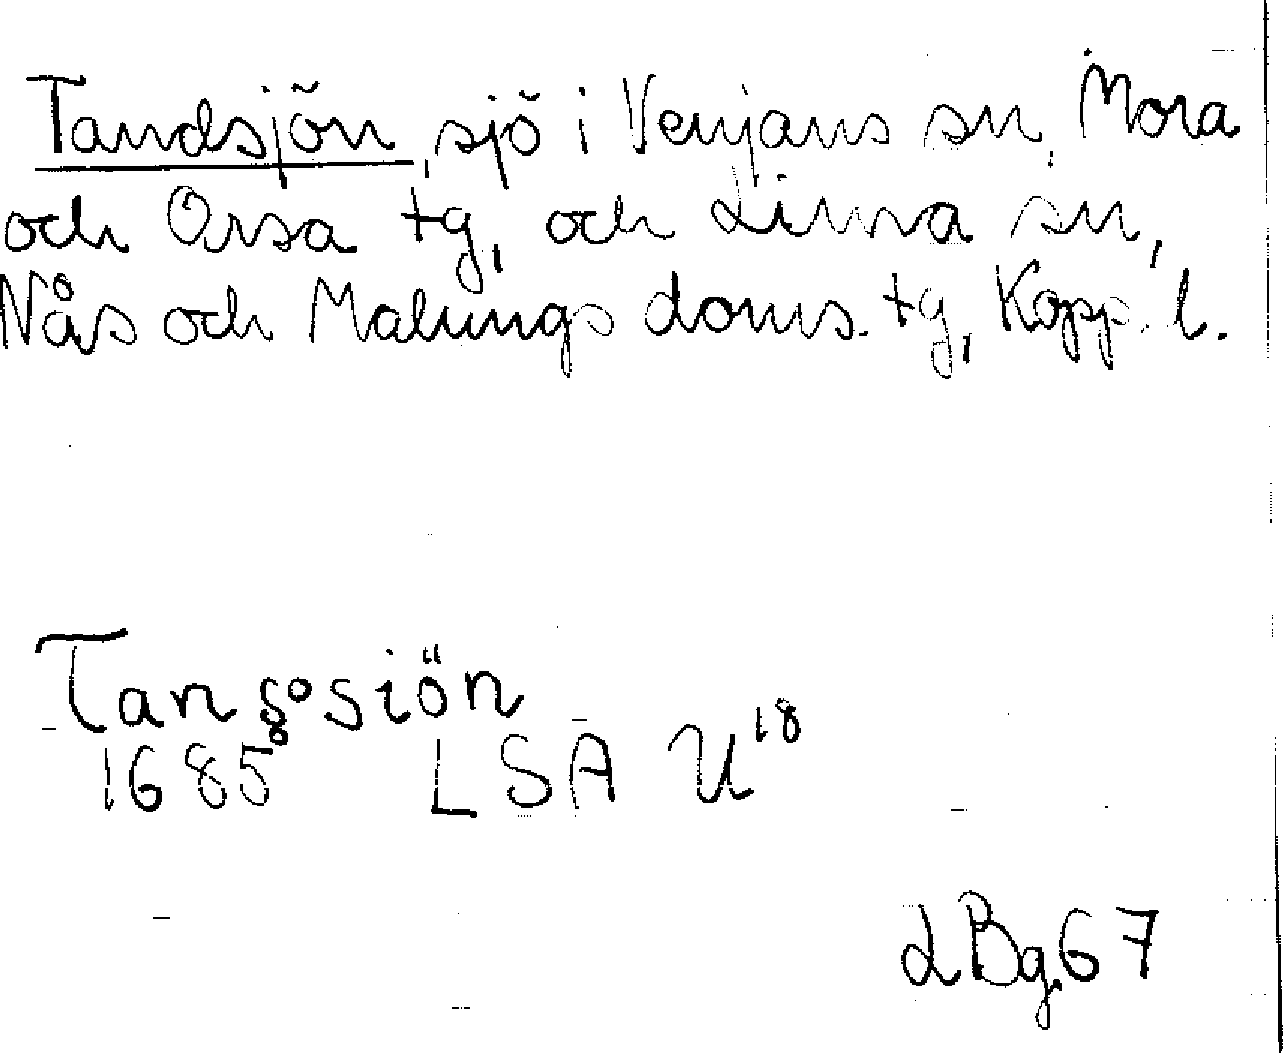 Tandsjön, sjö i Venjans sn, Mora
och Orsa tg, och Lima sn,
Nås och Malungs doms. tg, Kopp. l.
Tansosiön
1685 LSA U18
LBg67